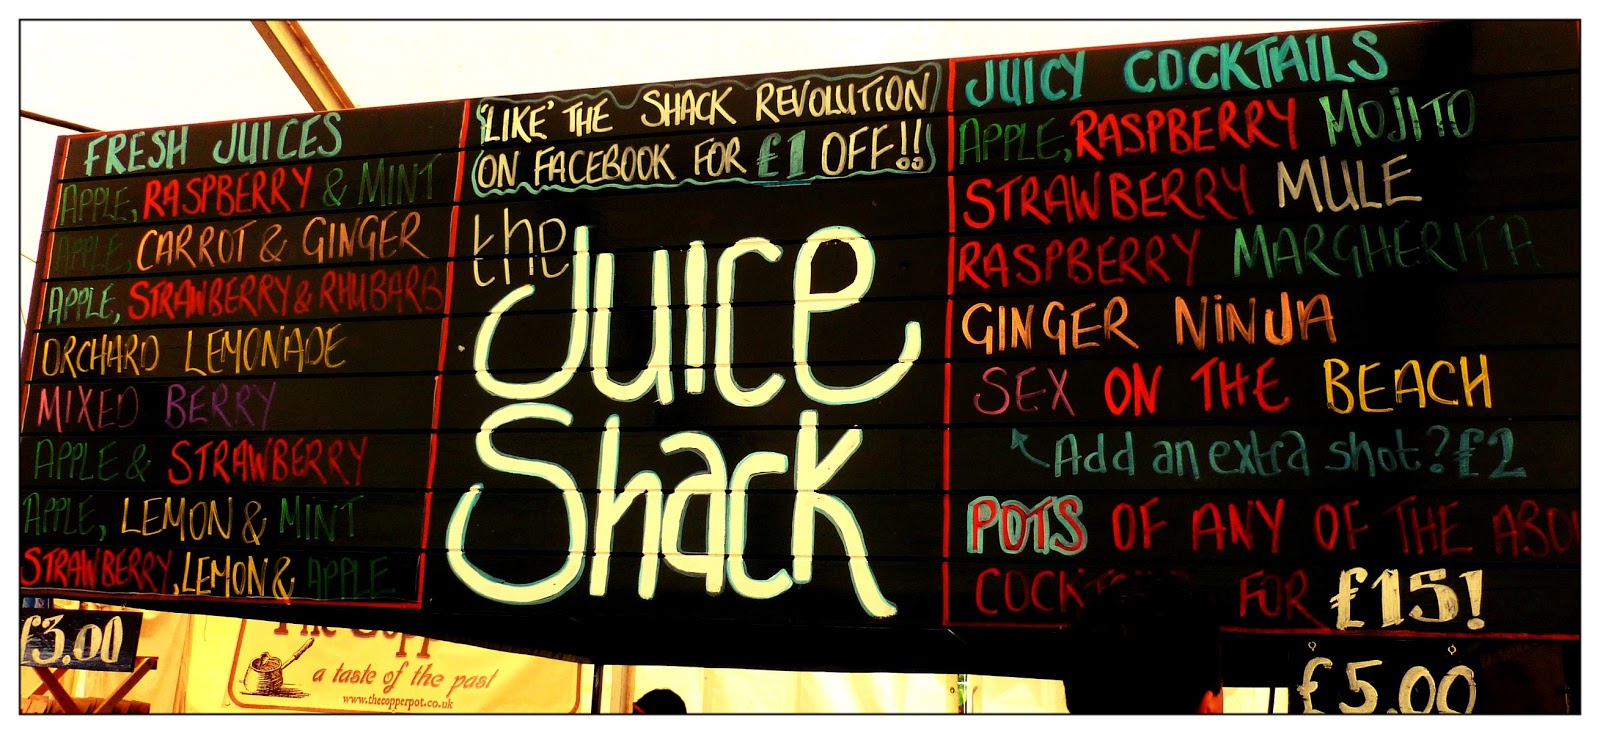 FRESH JUICES
APPLE, RASPBERRY & MINT
APPLE, CARROT & GINGER
APPLE, STRAWBERRY & RHUBARB
ORCHARD LEMONADE
MIXED BERRY
APPLE & STRAWBERRY
APPLE, LEMON & MINT
STRAWBERRY, LEMON & APPLE
£3.00
'LIKE' THE SHACK REVOLUTION
ON FACEBOOK FOR £1 OFF!!
the
Juice
Shack
JUICY COCKTAILS
APPLE, RASPBERRY MOJITO
STRAWBERRY MULE
RASPBERRY MARGHERITA
GINGER NINJA
SEX ON THE BEACH
Add an extra shot? £2
POTS OF ANY OF THE ABO
COCK FOR £15!
£5.00
a taste of the past
www.thecopperpot.co.uk